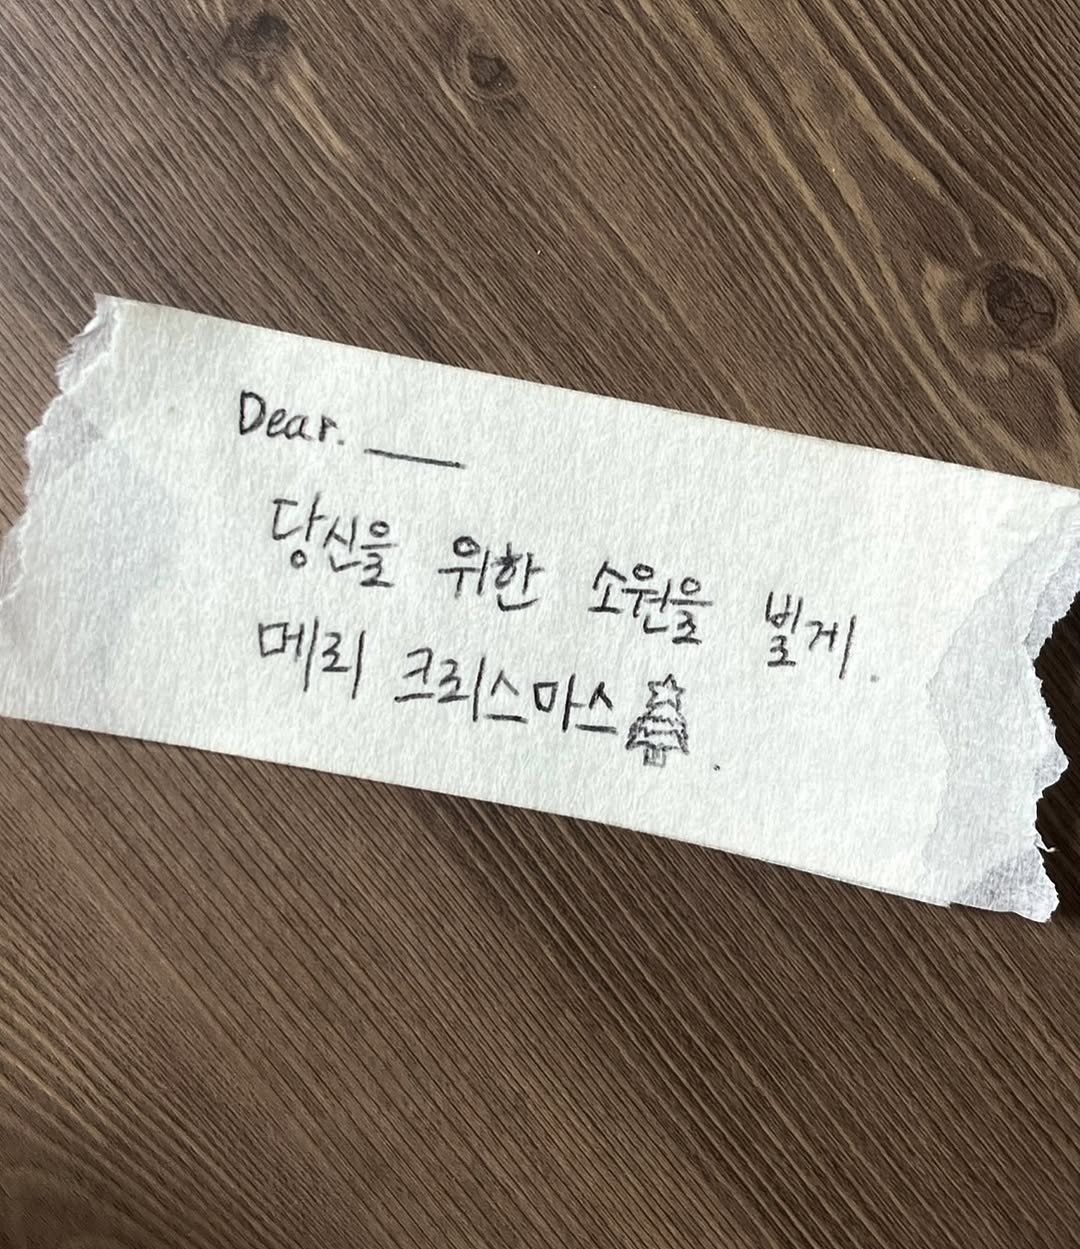 Dear. ___
당신을 위한 소원을 빌게.
메리 크리스마스 .